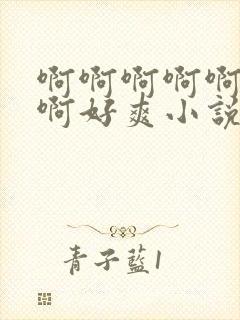 啊啊啊啊啊
啊好爽小說
青子藍1